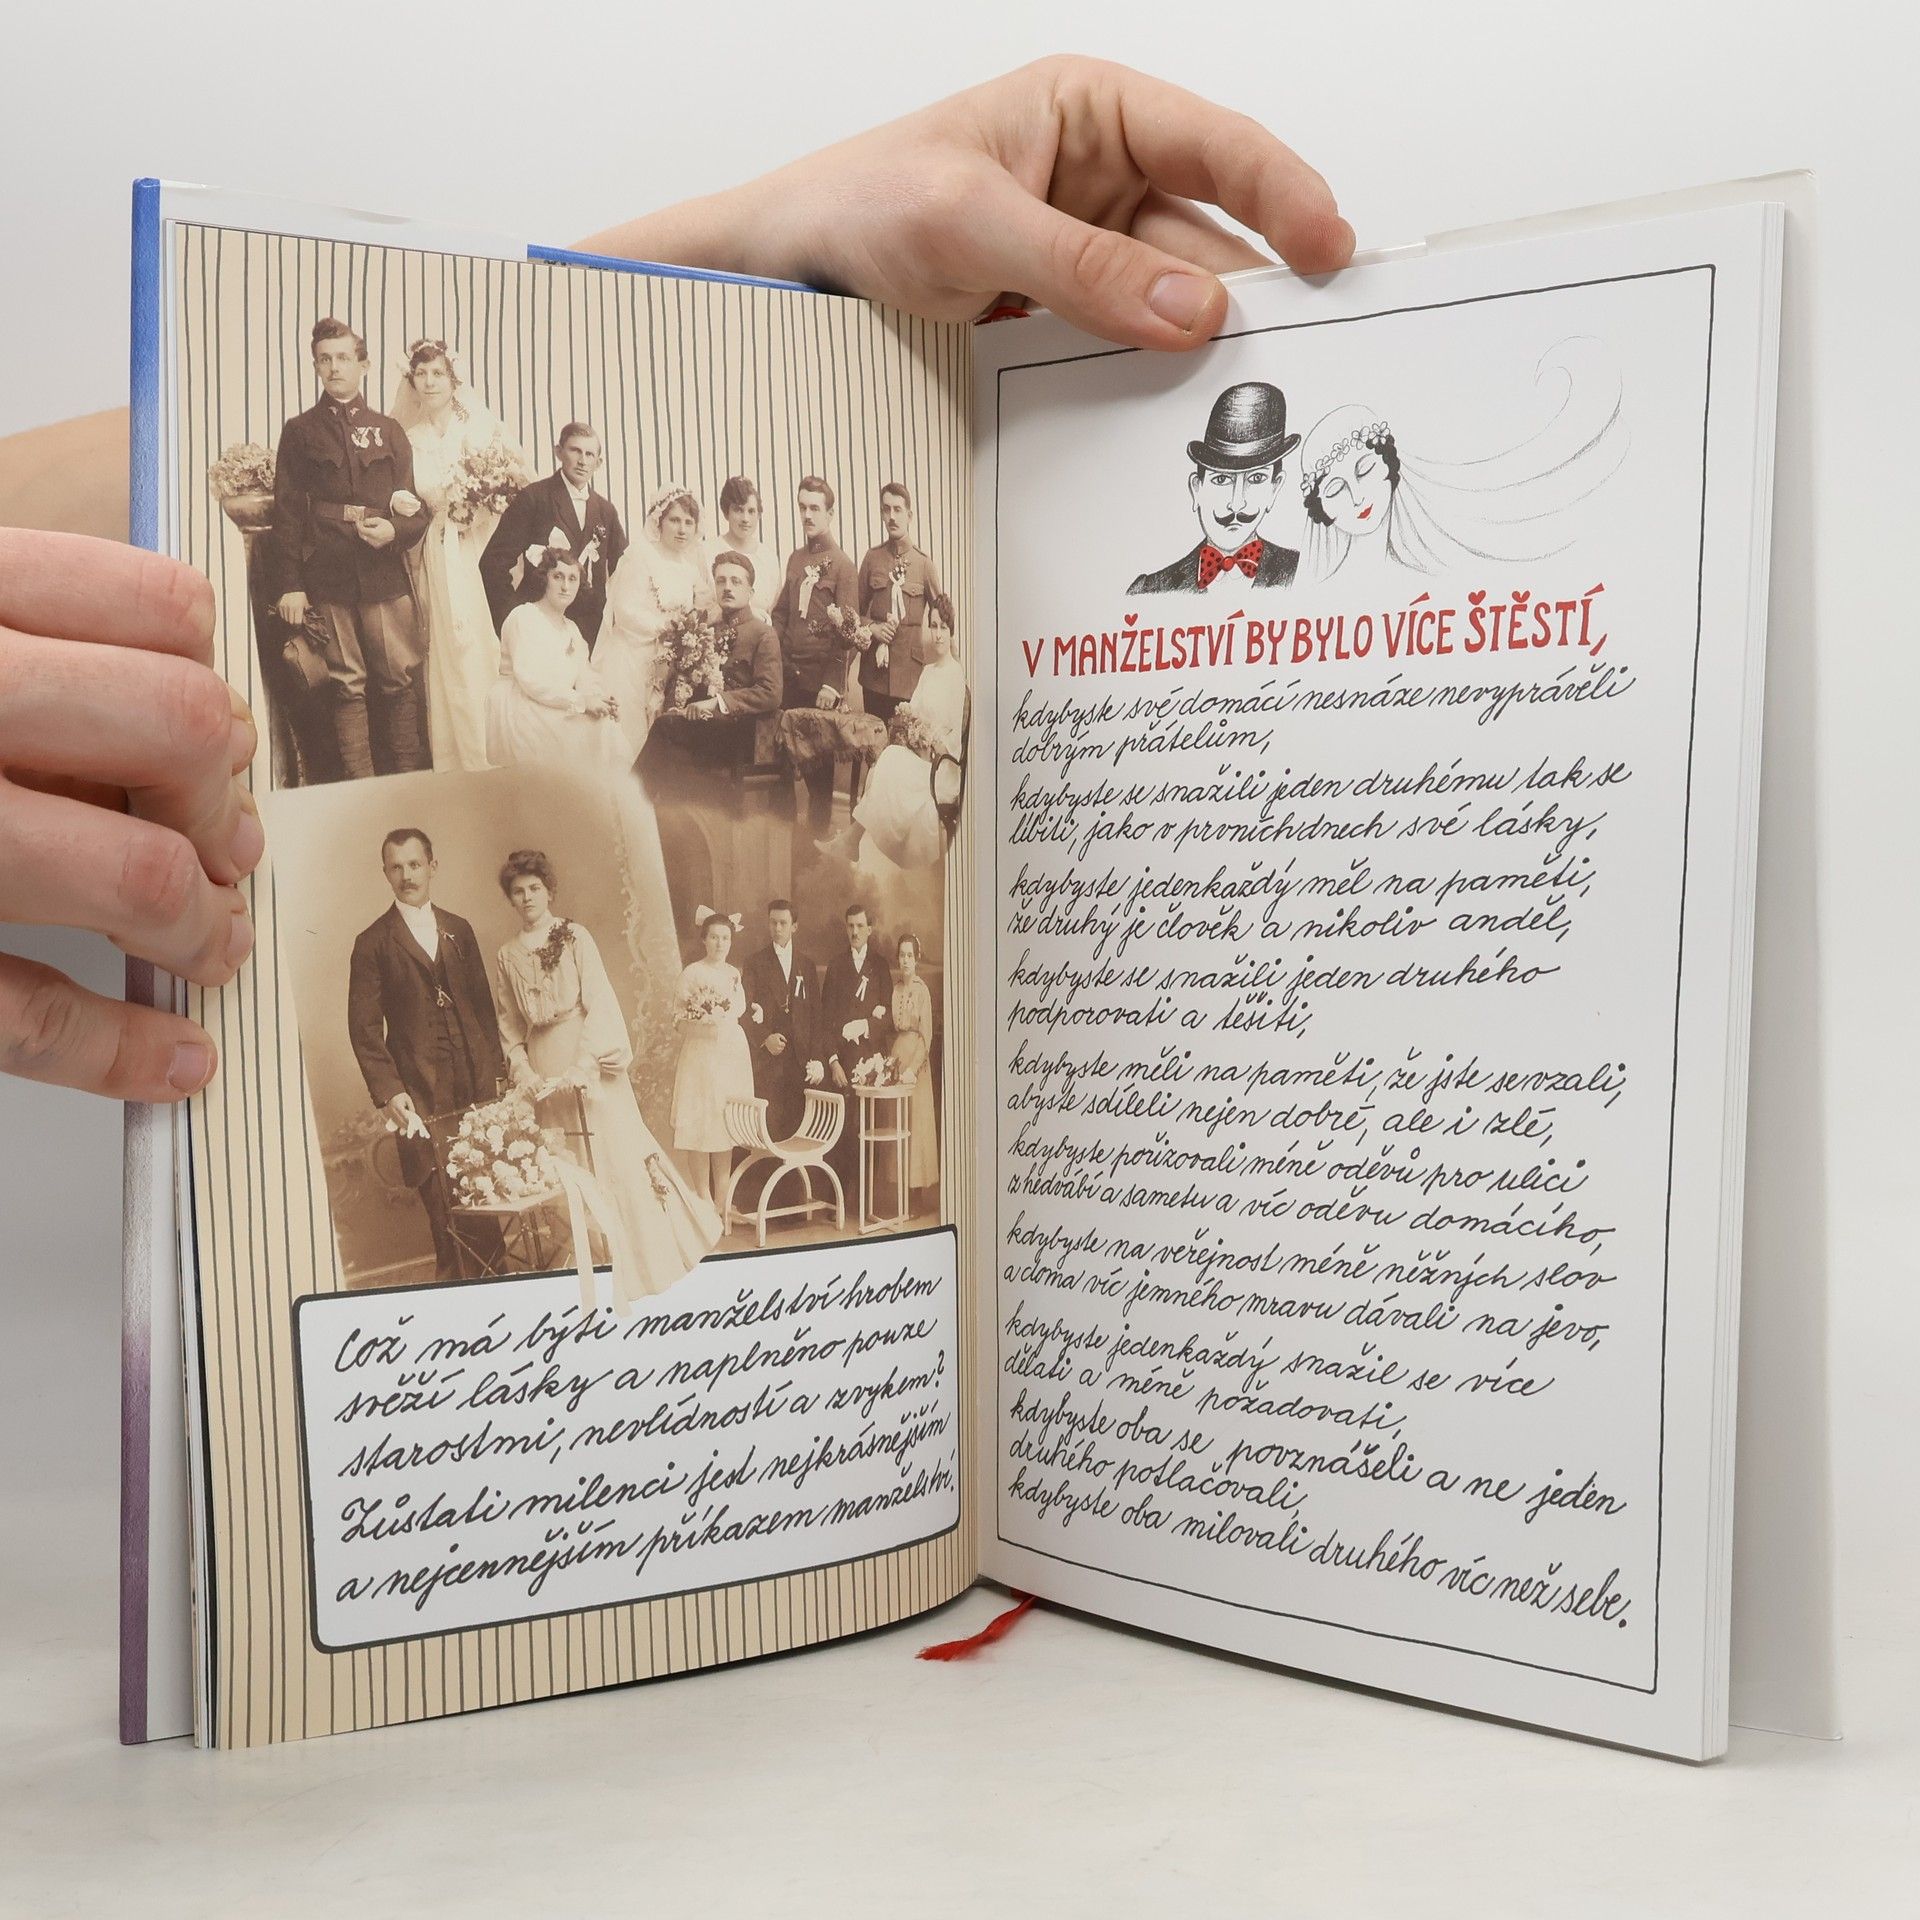 Což má býti manželství hrobem
svěží lásky a naplněno pouze
starostmi, nevlídností a zvykem?
Zůstati milenci jest nejkrásnějším
a nejcennějším příkazem manželství.
V MANŽELSTVÍ BY BYLO VÍCE ŠTĚSTÍ,
kdybyste své domácí nesnáze nevyprávěli
dobrým přátelům,
kdybyste se snažili jeden druhému tak se
líbiti, jako v prvních dnech své lásky,
kdybyste jedenkaždý měl na paměti,
že druhý je člověk a nikoliv anděl,
kdybyste se snažili jeden druhého
podporovati a těšiti,
kdybyste měli na paměti, že jste se vzali,
abyste sdíleli nejen dobré, ale i zlé,
kdybyste pořizovali méně oděvů pro ulici
z hedvábí a sametu a víc oděvu domácího,
kdybyste na veřejnost méně něžných slov
a doma víc jemného mravu dávali na jevo,
kdybyste jedenkaždý snažil se více
dělati a méně požadovati,
kdybyste oba se povznášeli a ne jeden
druhého potlačovali,
kdybyste oba milovali druhého víc než sebe.